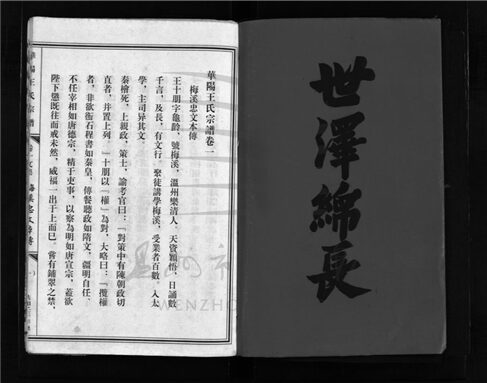 世澤綿長
華陽王氏宗譜卷一
梅溪忠文本傳
王十朋字龜齡，號梅溪，溫州樂清人。天資穎悟，日誦數
千言，及長，有文行。聚徒講學梅溪，受業者百數。入太
學，主司异其文。
秦檜死，上親政，策士，諭考官曰：『對策中有陳朝政切
者，并置上列。』十朋以『權』為對，大略曰：『攬權
者，非欲衡石程書如秦皇，傳餐聽政如隋文，疆明自任、
不任宰相如唐德宗，精于吏事，以察為明如唐宣宗，蓋欲
陛下懲既往而戒未然，威福一出于上而已。嘗有鋪翠之禁，
華陽王氏宗譜
卷一
WENZHO